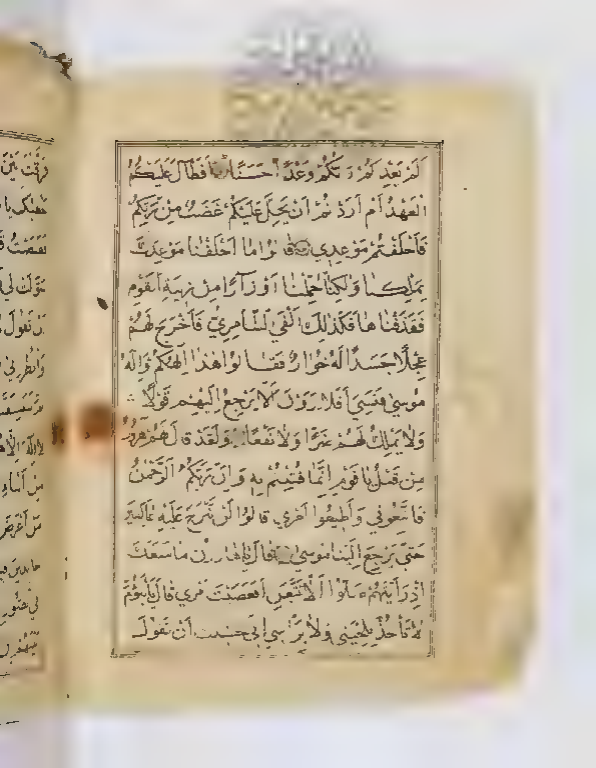 أَلَمْ يَعِدْكُمْ رَبُّكُمْ وَعْدًا حَسَنًا أَفَطَالَ عَلَيْكُمُ
الْعَهْدُ أَمْ أَرَدْتُمْ أَنْ يَحِلَّ عَلَيْكُمْ غَضَبٌ مِنْ رَبِّكُمْ
فَأَخْلَفْتُمْ مَوْعِدِي قَالُوا مَا أَخْلَفْنَا مَوْعِدَكَ
بِمَلْكِنَا وَلَكِنَّا حُمِّلْنَا أَوْزَارًا مِنْ زِينَةِ الْقَوْمِ
فَقَذَفْنَاهَا فَكَذَلِكَ أَلْقَى السَّامِرِيُّ فَأَخْرَجَ لَهُمْ
عِجْلًا جَسَدًا لَهُ خُوَارٌ فَقَالُوا هَذَا إِلَهُكُمْ وَإِلَهُ
مُوسَى فَنَسِيَ أَفَلَا يَرَوْنَ أَلَّا يَرْجِعُ إِلَيْهِمْ قَوْلًا
وَلَا يَمْلِكُ لَهُمْ ضَرًّا وَلَا نَفْعًا وَلَقَدْ قَالَ لَهُمْ هَرُونُ
مِنْ قَبْلُ يَا قَوْمِ إِنَّمَا فُتِنْتُمْ بِهِ وَإِنَّ رَبَّكُمُ الرَّحْمَنُ
فَاتَّبِعُونِي وَأَطِيعُوا أَمْرِي قَالُوا لَنْ نَبْرَحَ عَلَيْهِ عَاكِفِينَ
حَتَّى يَرْجِعَ إِلَيْنَا مُوسَى قَالَ يَا هَارُونُ مَا مَنَعَكَ
إِذْ رَأَيْتَهُمْ ضَلُّوا أَلَّا تَتَّبِعَنِ أَفَعَصَيْتَ أَمْرِي قَالَ يَابْنَؤُمَّ
لَا تَأْخُذْ بِلِحْيَتِي وَلَا بِرَأْسِي إِنِّي خَشِيتُ أَنْ تَقُولَ
فَرَّقْتَ بَيْنَ